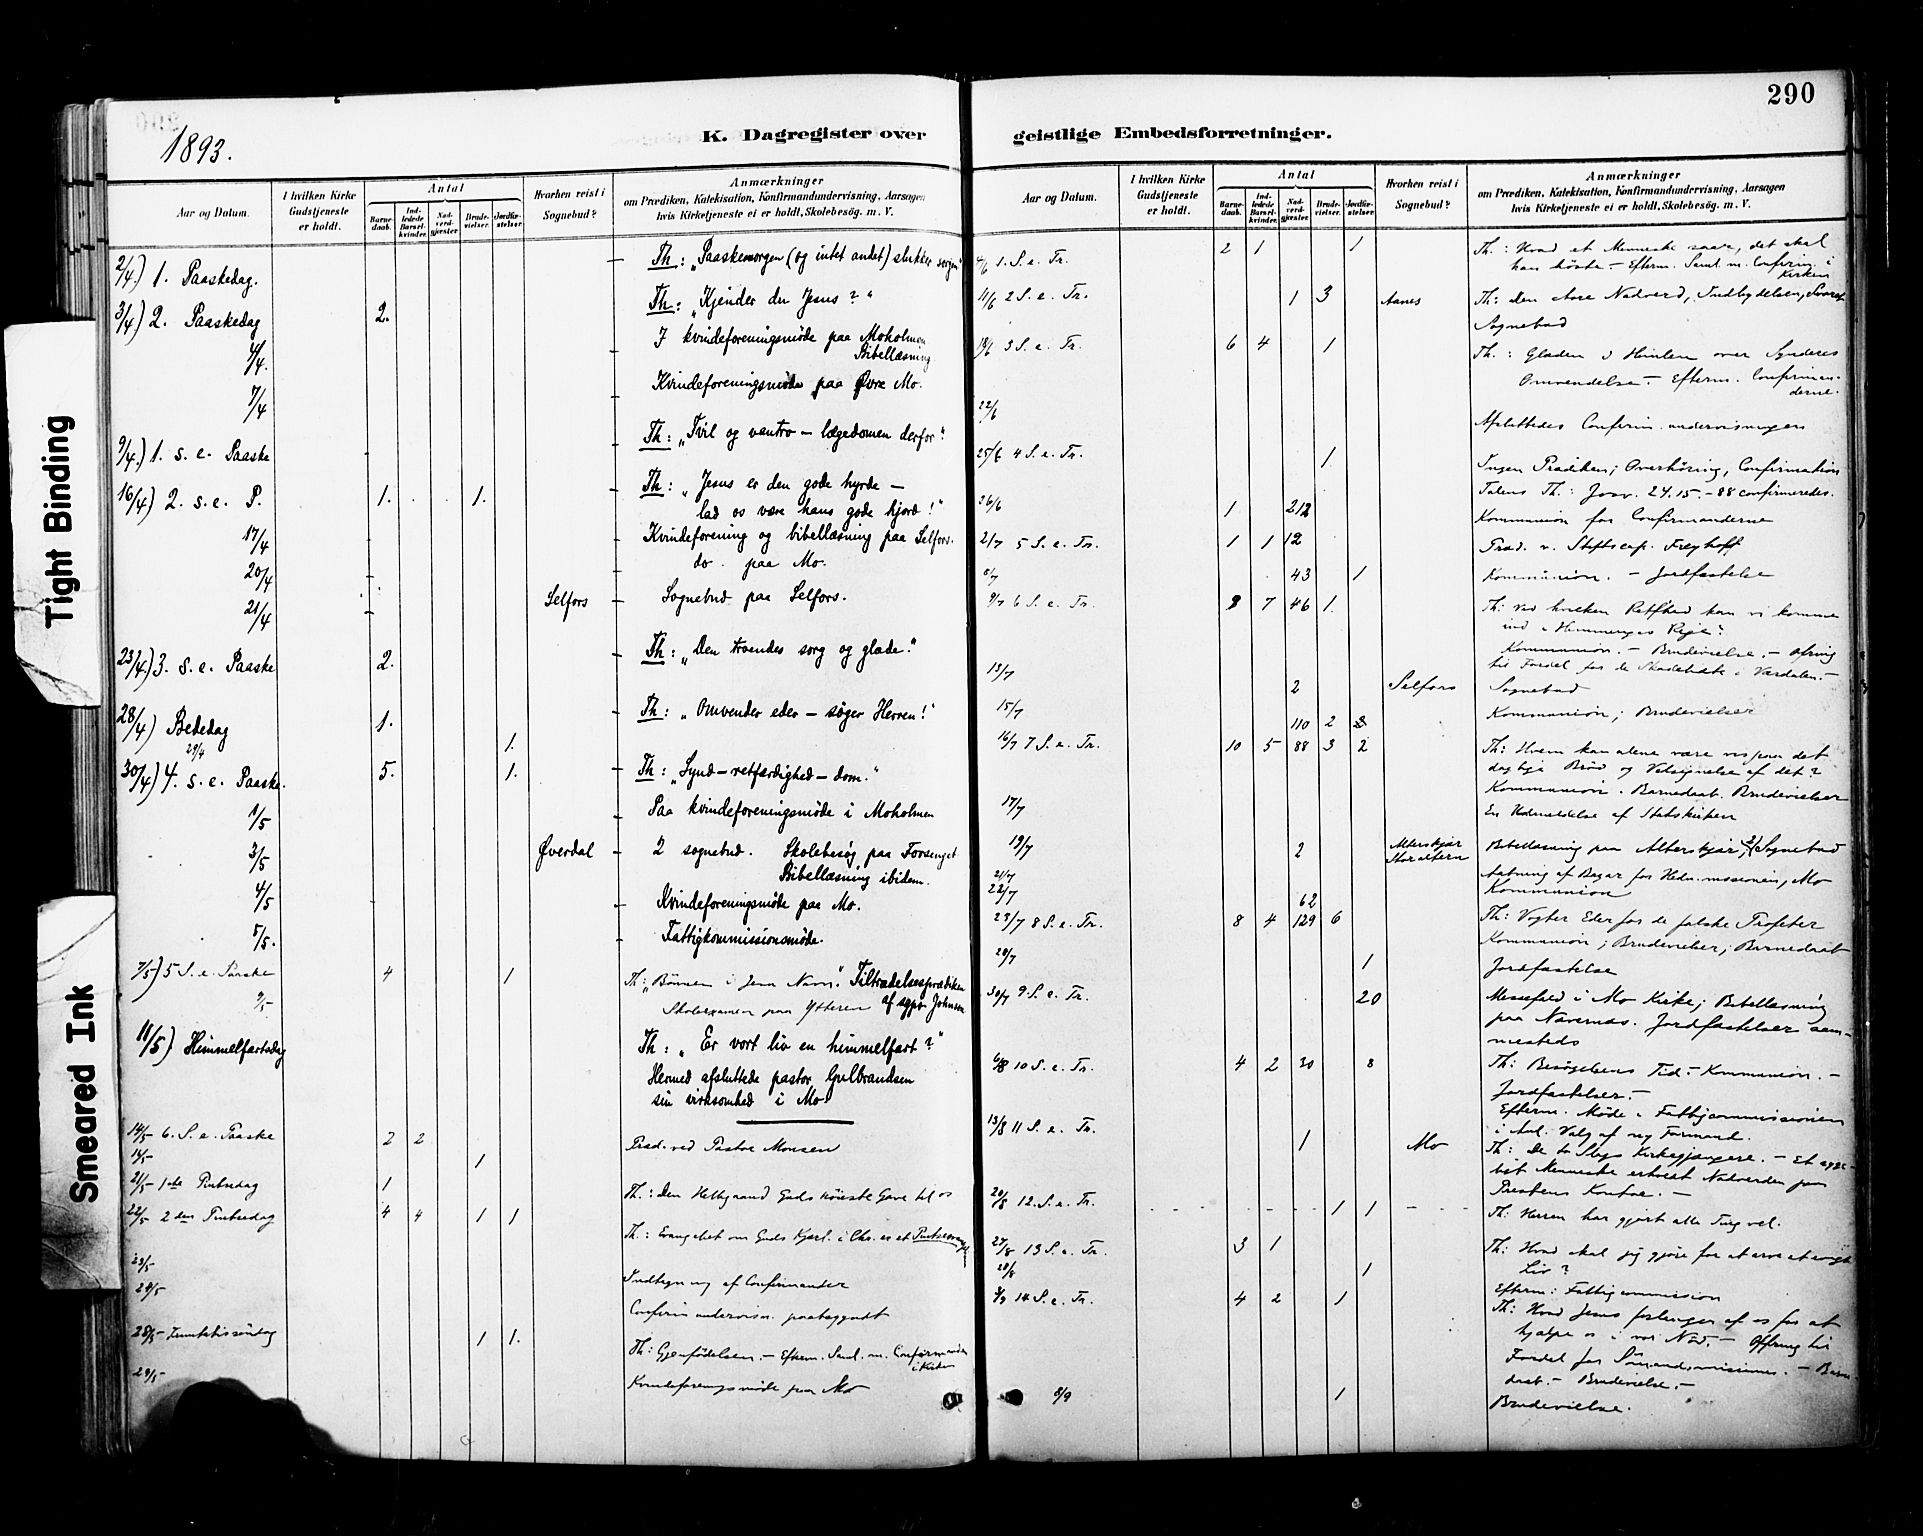 290
1893.
K. Dagregister over
geistlige Embedsforretninger.
Aar og Datum.
I hvilken Kirke Gudstjeneste er holdt.
Antal
Barne-daab.
Ind-ledede Barsel-kvinder.
Nad-verd-gjæster.
Brude-vielser.
Jordfæ-stelser.
Hvorhen reist i Sognebud?
Anmærkninger
om Prædiken, Katekisation, Konfirmandundervisning, Aarsagen
hvis Kirketjeneste ei er holdt, Skolebesøg. m. V.
2/4.) 1. Paaskedag. Th: "Paaskemorgen (og intet andet) slukker sorgen"
3/4.) 2. Paaskedag 2. Th: "Kjender du Jesus?"
4/4. I kvindeforeningsmöde paa Moholmen
Bibellæsning
7/4 Kvindeforeningsmöde paa Øvre Mo.
9/4.) 1. s. e. Paaske Th: "Tvil og vantro – lægedomen derfor"
16/4) 2. s. e. P. 1. 1. Th: "Jesus er den gode hyrde –
lad os være hans gode hjord!"
17/4 Kvindeforening og bibellæsning paa Selfors.
20/4 do. paa Mo.
21/4 Selfors Sognebud paa Selfors.
23/4.) 3. s. e. Paaske 2. Th: "Den troendes sorg og glæde."
28/4) Bededag 1. Th: "Omvender eder – søger Herren!"
29/4 1.
30/4) 4. s. e. Paaske. 5. 1. Th: "Synd – retfærdighed – dom."
1/5 Paa kvindeforeningsmöde i Moholmen
3/5 Øverdal 2 sognebud. Skolebesøg paa Forsenget
Bibellæsning ibidem.
4/5 Kvindeforeningsmöde paa Mo.
5/5. Fattigkommissionsmöde.
7/5) 5 S. e. Paaske 4 1 Th: "Bönnen i Jesu Navn." Tiltrædelsesprædiken
9/5 Skoleexamen paa Ytteren af sgpr Johnson
11/5) Himmelfartsdag Th: "Er vort liv en himmelfart?"
Hermed afsluttede pastor Gulbrandsen
sin virksomhed i Mo
14/5 6. S. e. Paaske 2 2 Præd. ved Pastor Monsen
14/5 1
21/5 1ste Pintsedag 1 Th: Den Helligaand Guds höieste Gave til os
22/5 2den Pintsedag 4 4 1 1 Th: Evangeliet om Guds Kjærl. i Chr. er et
23/5 Indtegning af Confirmander
24/5 Confirm undervisn. paabegyndt
28/5 1 1. Th: Gjenfödelsen. – Efterm. Saml. m. Confirmanden
i Kirken
29/5 Kvindeforeningsmöde paa Mo
Aar og Datum.
I hvilken Kirke Gudstjeneste er holdt.
Antal
Barne-daab.
Ind-ledede Barsel-kvinder.
Nad-verd-gjæster.
Brude-vielser.
Jordfæ-stelser.
Hvorhen reist i Sognebud?
Anmærkninger
om Prædiken, Katekisation, Konfirmandundervisning, Aarsagen
hvis Kirketjeneste ei er holdt, Skolebesøg. m. V.
4/6 1. S. e. Tr. 2 1 1 Th: Hvad et Menneske saar, det skal
han höste. – Efterm. Saml. m. Confirm. i
Kirken
11/6 2 S. e. Tr. 1 3 Aanes Th: Den store Nadverd, Indbydelsen,
Sognebud
18/6 3 S. e. Tr. 6 4 1 Th: Glæden i Himlen over Synderes
Omvendelse. – Efterm. Confirman-
derne.
22/6 Afsluttedes Confirm. undervisningen
25/6 4 S. e. Tr. 1 Ingen Prædiken; Overhöring, Confirmation
Talens Th: Josv. 24.15. – 88 confirmeredes.
26/6 1 212 Kommunion for Confirmanderne
2/7 5 S. e. Tr. 1 1 12 Præd. v. Stiftscap. Freyhoff
8/7 43 1 Kommunion. – Jordfæstelse
9/7 6 S. e. Tr. 7 46 1. Th: Ved hvilken Retfhed kan vi komme
ind i Himmeriges Rige?
Kommunion. – Brudevielse. – Ofring
til Fordel for de Skadelidte i Værdalen. –
13/7 2 Selfors Sognebud
15/7 110 2 Kommunion; Brudevielser
16/7 7 S. e. Tr. 10 5 88 3 2 Th: Hvem kan alene være os paa det
daglige Bröd og Velsignelse af det?
Kommunion. Barnedaab. Brudevielser
17/7 En Udmeldelse af Statskirken
19/7 2 Alterskjær Bibellæsning paa Alterskjær; 2 Sognebud
21/7 Aabning af Bazar for Hedn. missionen, Mo
22/7 62 Kommunion
23/7 8 S. e. Tr. 8 4 129 6 Th: Vogter Eder for de falske Profeter
Kommunion; Brudevielser; Barnedaab
28/7 1 Jordfæstelse
30/7 9 S. e. Tr. 20 Messefald i Mo Kirke; Bibellæsning
paa Nævernæs. Jordfæstelser sam-
mesteds
6/8 10 S. e. Tr. 4 2 30 8 Th: Besögelsens Tid. – Kommunion. –
Jordfæstelser. –
Efterm. Möde i Fattigcommissionen
i Anl. Valg af ny Formand.
13/8 11 S. e. Tr. 1 Mo Th: De to Slags Kirkegjængere. –
Menneske erholdt Nadverden paa
Prestens Kontor. –
20/8 12. S. e. Tr. 1 1 Th: Herren har gjort alle Ting vel.
27/8 13 S. e. Tr. 3 1 Th: Hvad skal jeg gjöre for at arve et evigt
Liv?
28/8 1 Efterm: Fattigcommission
3/9 14 S. e. Tr. 4 2 1 Th: Hvad Jesus forlanger af os for at
hjælpe os i vor Nöd. – Offring til
Fordel for Sömandsmissionen. – Barne
daab. – Brudevielse. –
8/9 1 Brudevielse.
Tight Binding
Smeared Ink